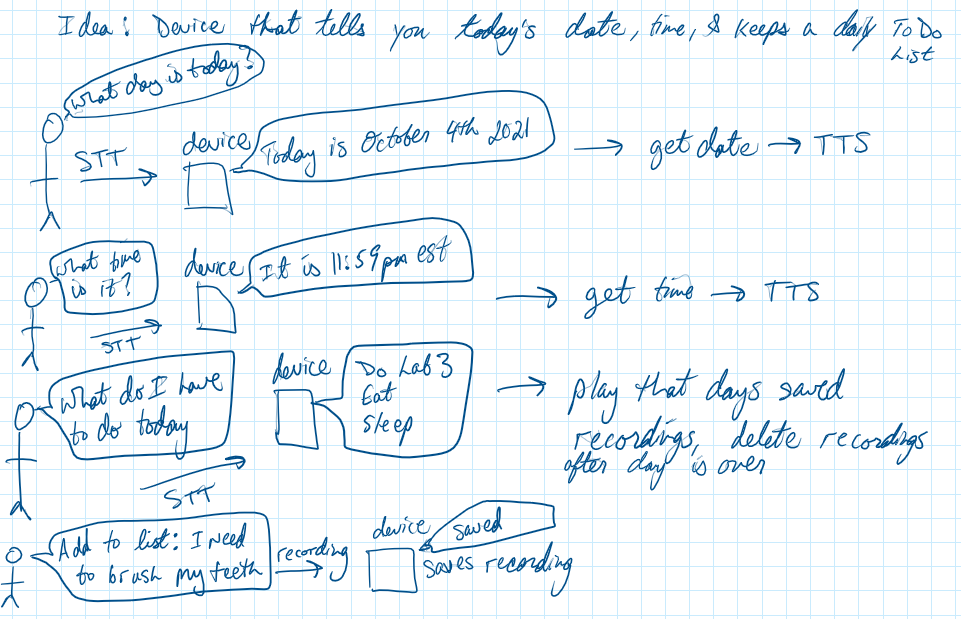 Idea: Device that tells you today's date, time, & keeps a daily To Do
List
What day is today?
STT
device
Today is October 4th 2021
get date → TTS
What time
is it?
STT
device
It is 11:59pm est
get time → TTS
What do I have
to do today
STT
device
Do Lab 3
Eat
Sleep
play that days saved
recordings, delete recordings
after day is over
Add to list: I need
to brush my teeth
recording
device
saved
saves recording